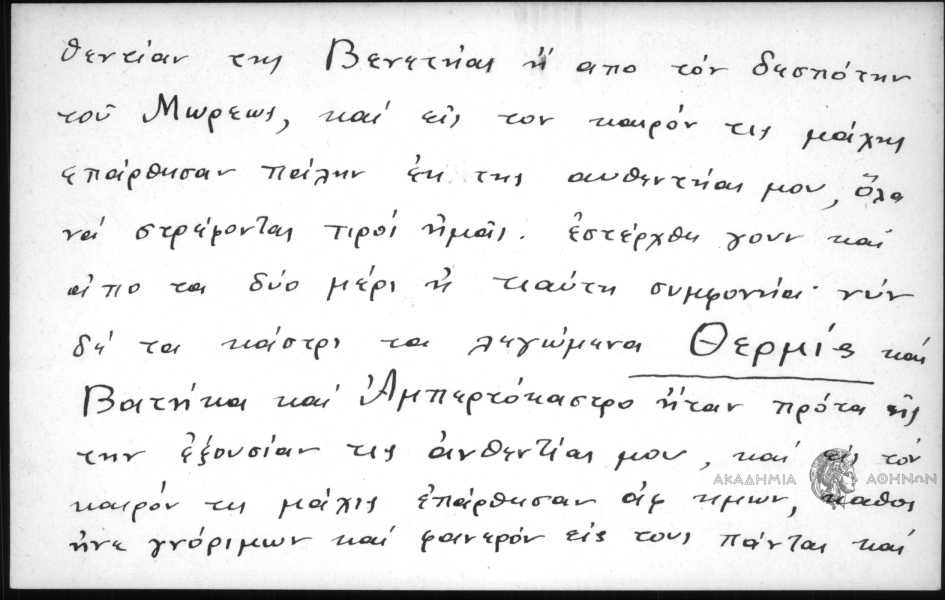 θεντίαν της Βενετήας ἤ απο τόν δεσπότην
τοῦ Μωρεως, καί εἰς τον καιρόν τις μάχης
επάρθησαν πάλην ἐκ της αυθεντήας μου, ὅλα
νά στρέφονται πρός ἡμᾶς. ἐστέρχθη γουν καί
ἀπο τα δύο μέρι ἡ τιαύτη συμφονήα· νύν
δέ τα κάστρι τα λεγώμενα Θερμίς καί
Βατήκα καί Ἀμπερτόκαστρο ἤταν πρότα εἰς
την ἐξουσίαν τις ἀνθεντίας μου, καί εἰς τόν
καιρόν τις μάχις ἐπάρθησαν ἀφ ημων, καθος
ἠνε γνόριμων καί φανερόν εἰς τους πάντας καί
ΑΚΑΔΗΜΙΑ ΑΘΗΝΩΝ